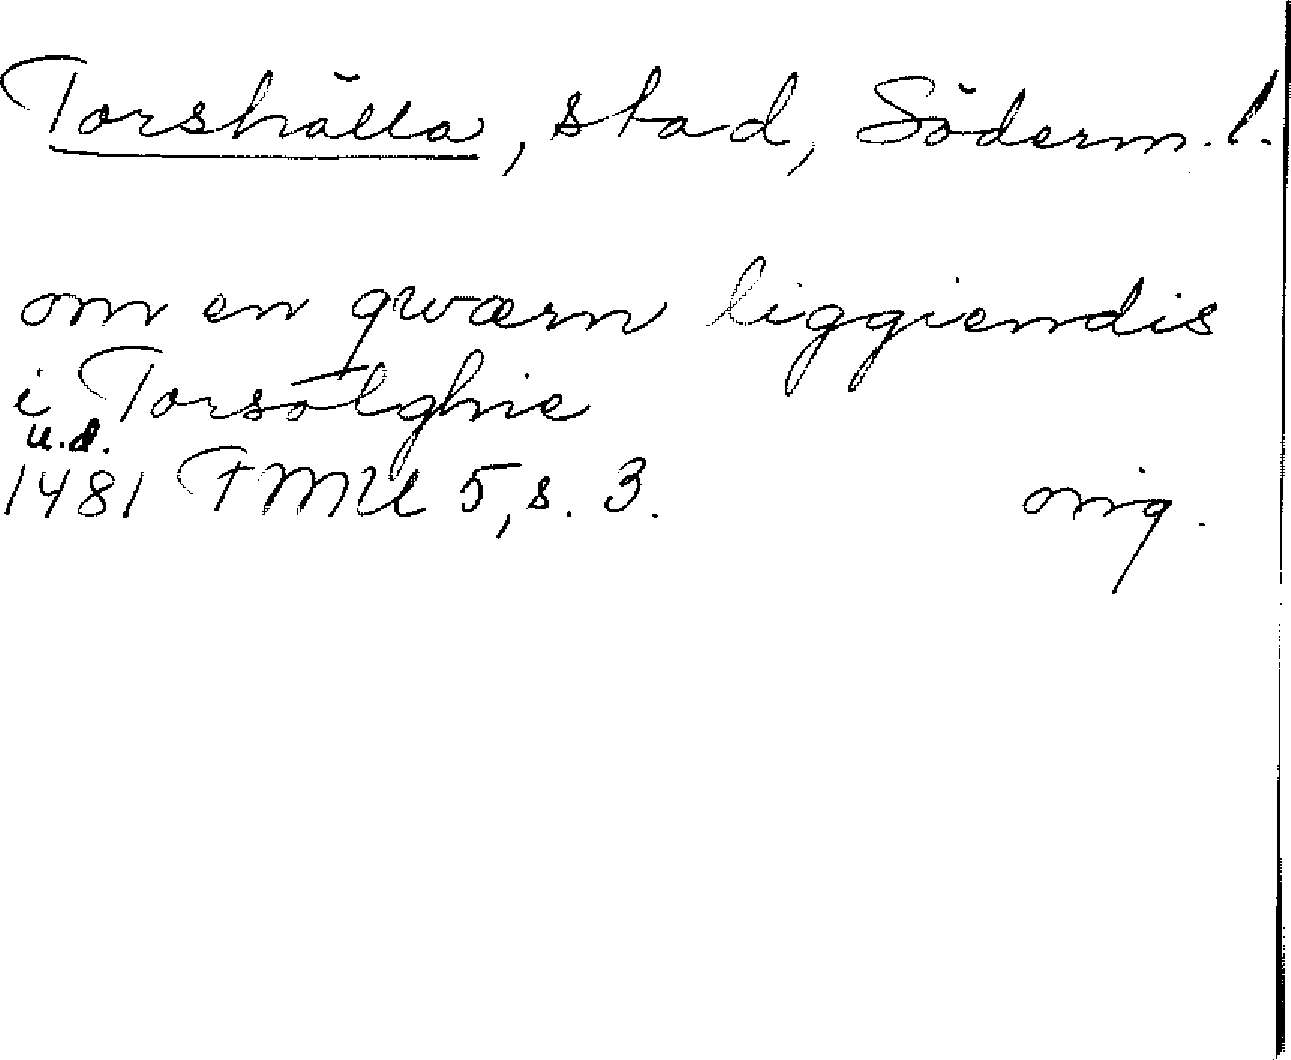 Torshälla, stad, Söderm. l.
om en qwærn liggiendis
i Torsølghie
u.d.
1481 FMU 5, s. 3. orig.